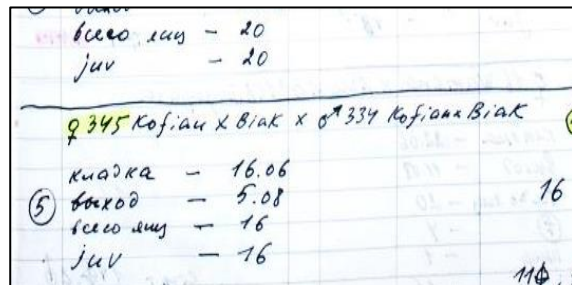 всего яиц – 20
juv – 20
♀ 345 Kofiau x Biak x ♂ 334 Kofiau x Biak
кладка – 16.06
⑤ выход – 5.08
16
всего яиц – 16
juv – 16